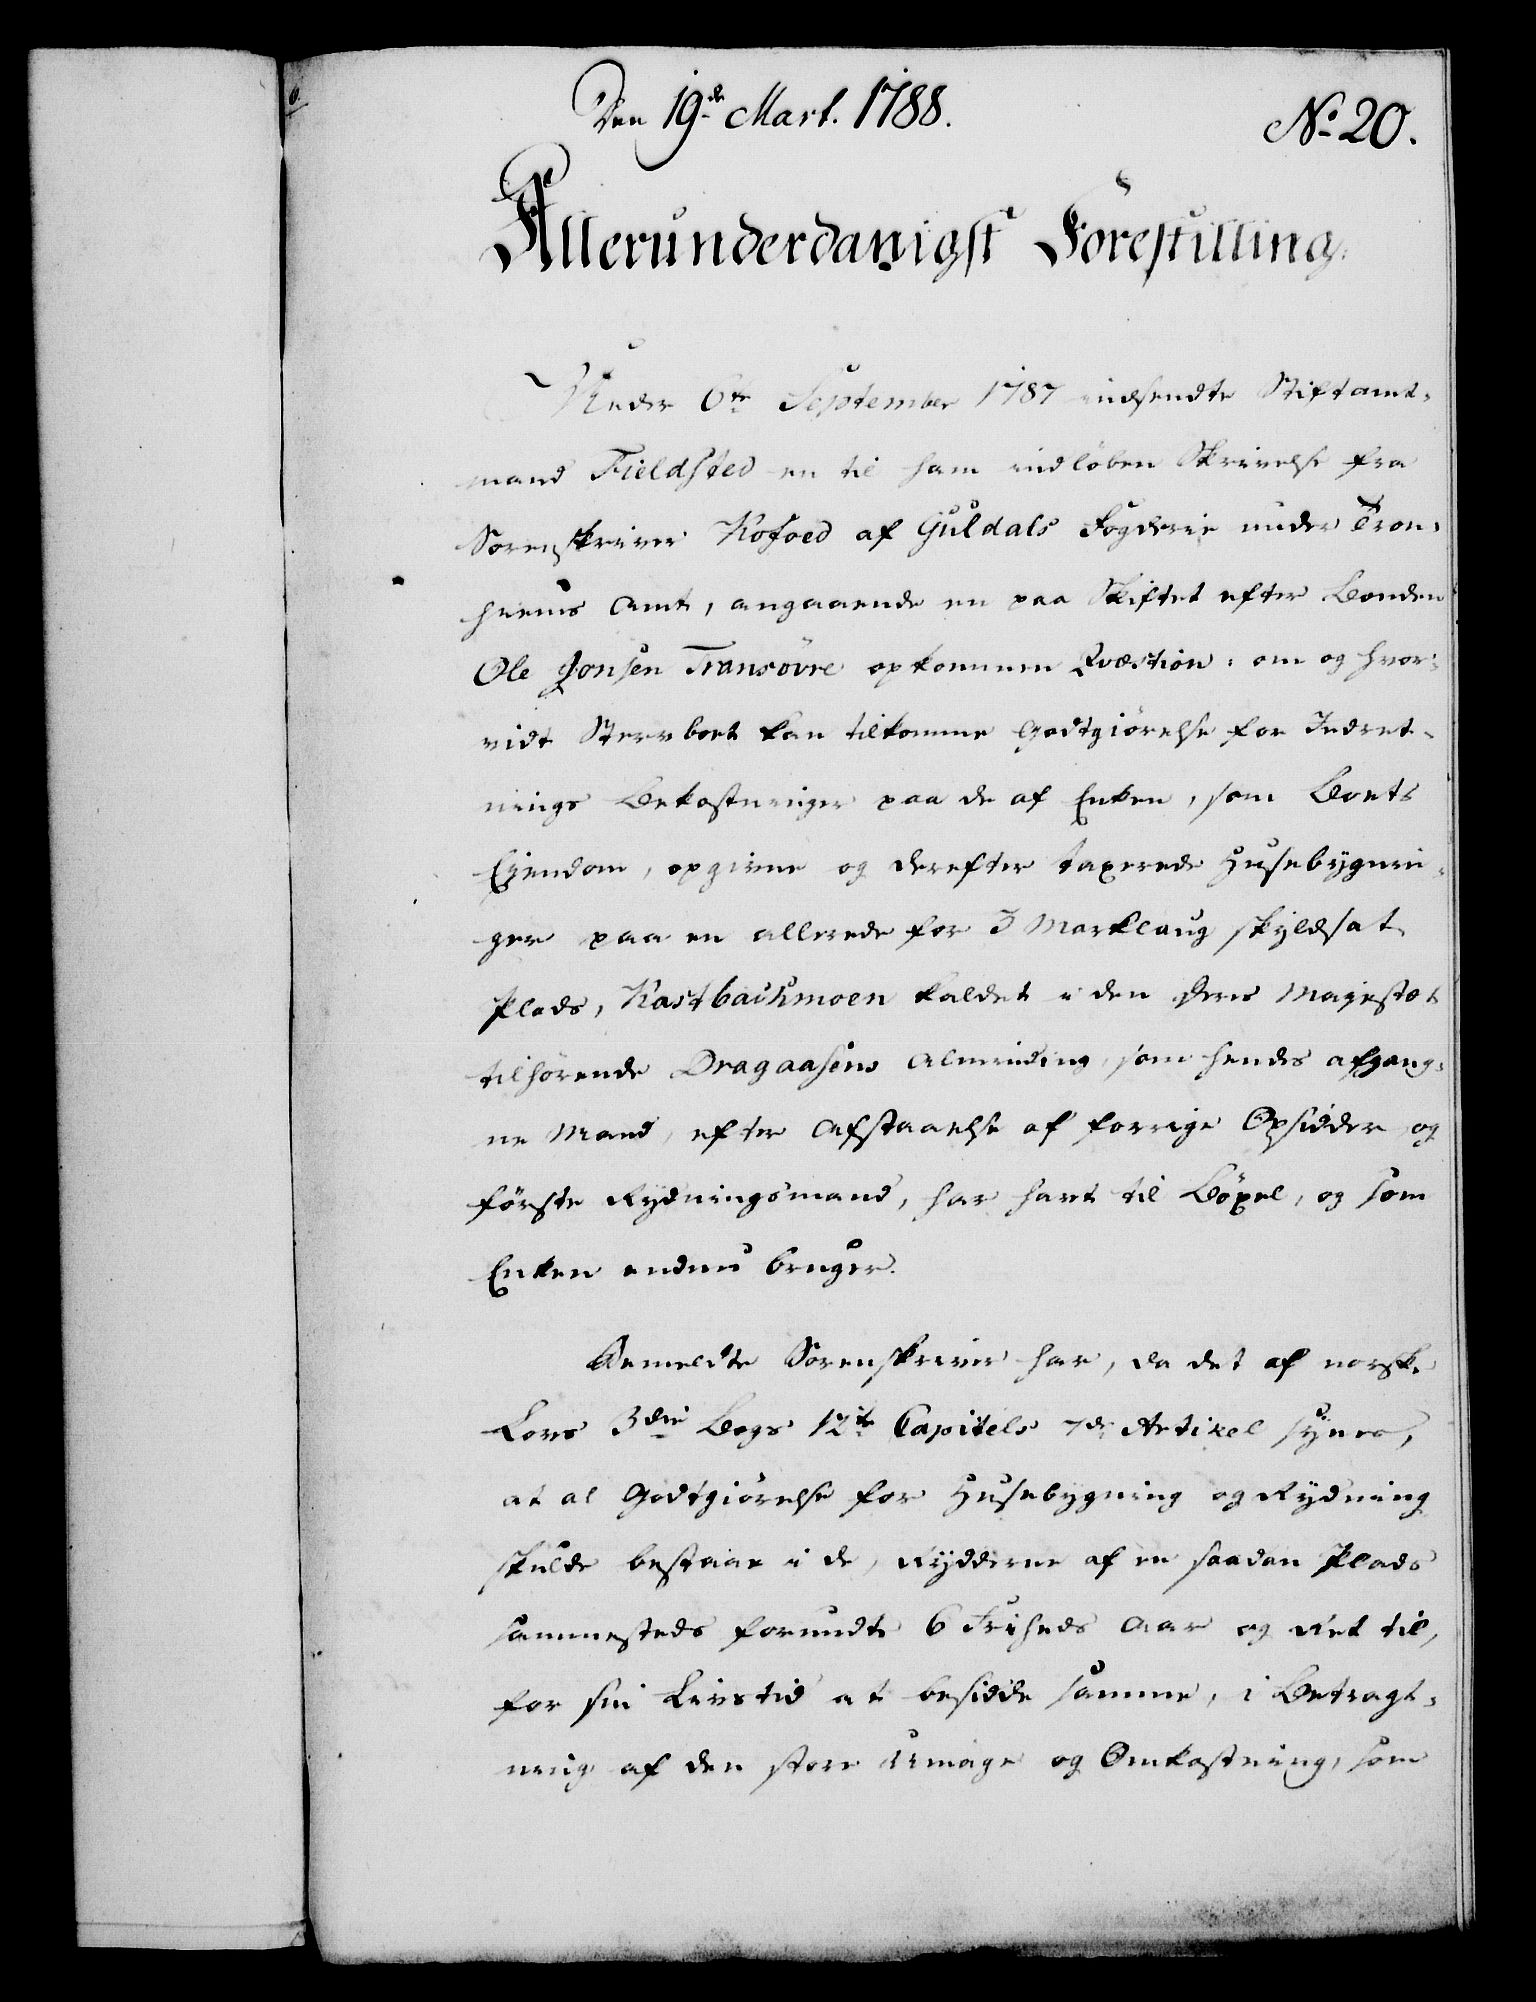 Den 19de Mart. 1788.
No 20.
Allerunderdanigst Forestilling.
Under 6te September 1787 indsendte Stiftamt-
mand Fieldsted en til ham indløben Skrivelse fra
Sorenskriver Kofoed af Guldals Fogderie under Tron-
hiems Amt, angaaende en paa Skiftet efter Bonden
Ole Jonsen Transövre opkommen Qvæstion: om og hvor-
vidt Stervboet kan tilkomme Godtgiörelse for Indret-
nings Bekostninger paa de af Enken, som Boets
Eÿendom, opgivne og derefter taxerede Husebygnin-
ger paa en allerede for 3 Marklaug skyldsat
Plads, Kastbachmoen kaldet i den Deres Majestæt
tilhörende Dragaasens Alminding, som hendes afgang-
ne Mand, efter Afstaaelse af forrige Opsidder og
förste Rydningsmand, har havt til Böxel, og som
Enken endnu bruger.
Bemeldte Sorenskriver har, da det af norske
Lovs 3die Bogs 12te Capitels 7de Artikel synes,
at al Godtgiörelse for Husebygning og Rydning
skulde bestaae i de, Rydderne af en saadan Plads
sammesteds forundte 6 Friheds Aar og Ret til,
for sin Livstid at besidde samme, i Betragt-
ning af den store Umage og Omkostning, som